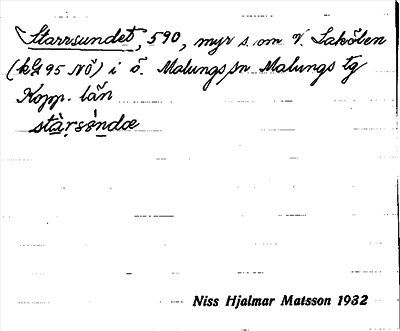 Starrsundet, 590, myr s. om V. Laköben
(kG 95 NÖ) i ö. Malungs sn Malungs tg
Kopp. län
stàrsùndæ
Niss Hjalmar Matsson 1932